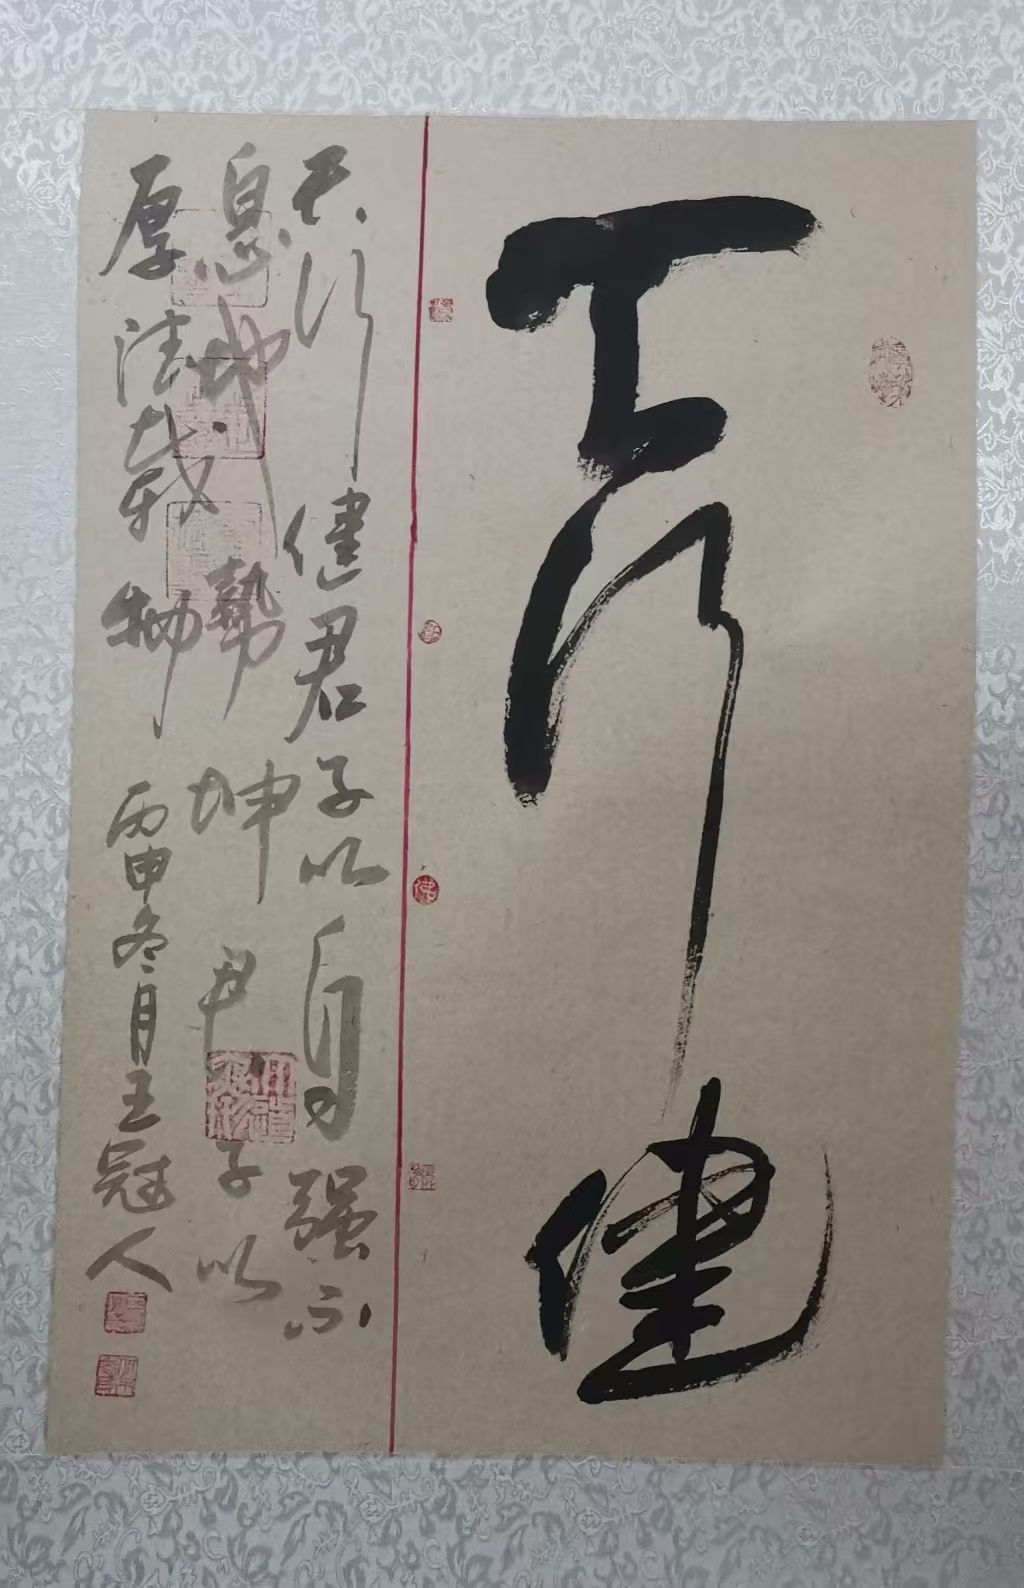 天行健
天行健君子以自强不
息地勢坤君子以
厚德载物 丙申冬月王冠人